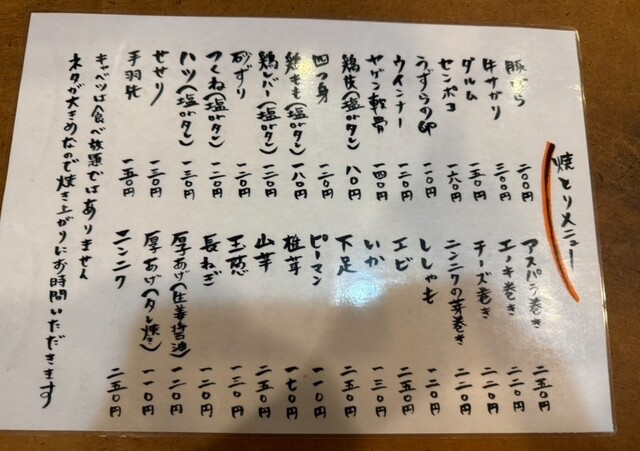 焼とりメニュー
豚バラ 二〇〇円
牛サガリ 三〇〇円
ダルム 一五〇円
センポコ 一六〇円
うずらの卵 一〇〇円
ウインナー 一二〇円
ヤゲン軟骨 一四〇円
鶏皮(塩orタレ) 八〇円
四つ身 一二〇円
鶏もも(塩orタレ) 一八〇円
鶏レバー(塩orタレ) 一二〇円
砂ずり 一二〇円
つくね(塩orタレ) 一二〇円
ハツ(塩orタレ) 一三〇円
せせり 一三〇円
手羽先 一五〇円
アスパラ巻き 二五〇円
エノキ巻き 二二〇円
チーズ巻き 二二〇円
ニンニクの芽巻き 二二〇円
ししゃも 一二〇円
エビ 二五〇円
いか 一三〇円
下足 二五〇円
ピーマン 一一〇円
椎茸 一七〇円
山芋 二五〇円
玉葱 一三〇円
長ねぎ 一二〇円
厚あげ(生姜醤油) 一二〇円
厚あげ(タレ焼き) 一一〇円
ニンニク 二五〇円
キャベツは食べ放題ではありません
ネタが大きめなので焼き上がりにお時間いただきます